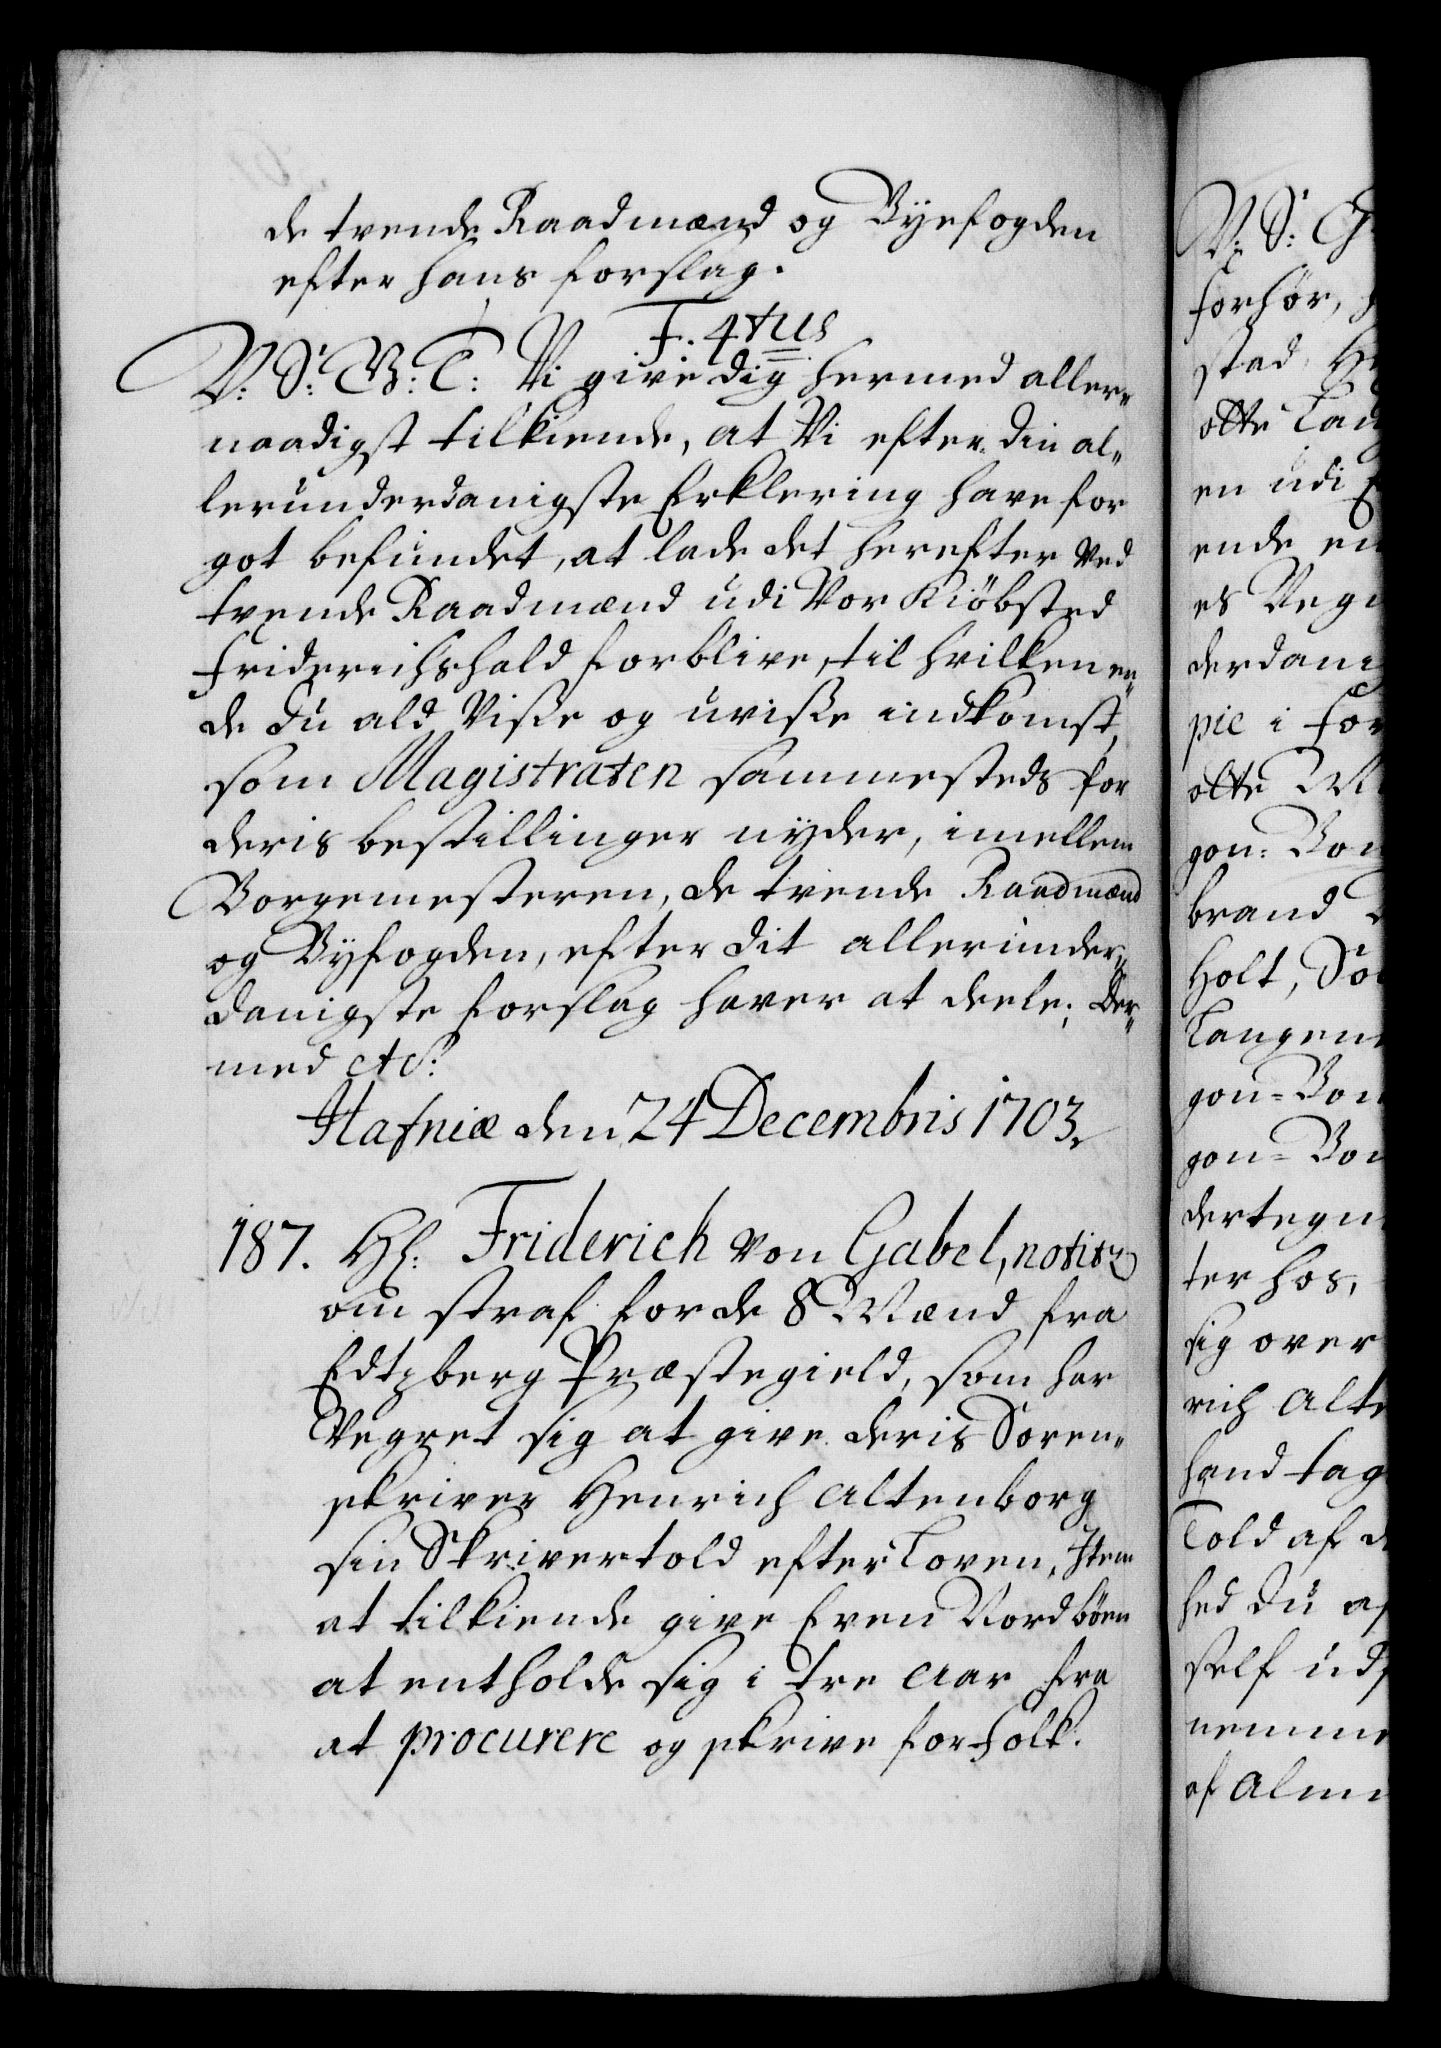 de tvende Raadmænd og Byefogden
efter hans forslag.
F. 4tus
V: S: G: T: Vi give dig hermed aller„
naadigst tilkiende, at Vi efter din al„
lerunderdanigste Erklering have for
got befundet, at lade det herefter ved
tvende Raadmænd udi Vor Kiöbsted
Friderichshald forblive, til hvilken en„
de du ald Visse og uvisse indkomst,
som Magistraten sammesteds for
deris bestillinger nyder, imellem
Borgemesteren, de tvende Raadmænd
og Byfogden, efter dit allerunder„
danigste forslag haver at deele; Der„
med etc:
Hafniæ den 24 Decembris 1703.
187. Hl: Friderich von Gabel, notitz
om straf for de 8 Mænd fra
Edtzberg Præstegield, som har
Vegret sig at give deris Soren„
skriver Henrich Altenborg
sin Skrivertold efter Loven, Item
at tilkiende give Even Nordböen
at entholde sig i tre Aar fra
at procurere og skrive for folk.
V: S: G
forhör,
stad
otte Lau
en udi
ende en
es Vegn
derdani
pie i For
otte M
gon: Bon
brand
Holt, So
Langen
gon=Bon
gon=Bon
dertegn
ter hos,
sig over
rich Alte
hand tag
Told af
hed du af
self ud
nemme
af Alm